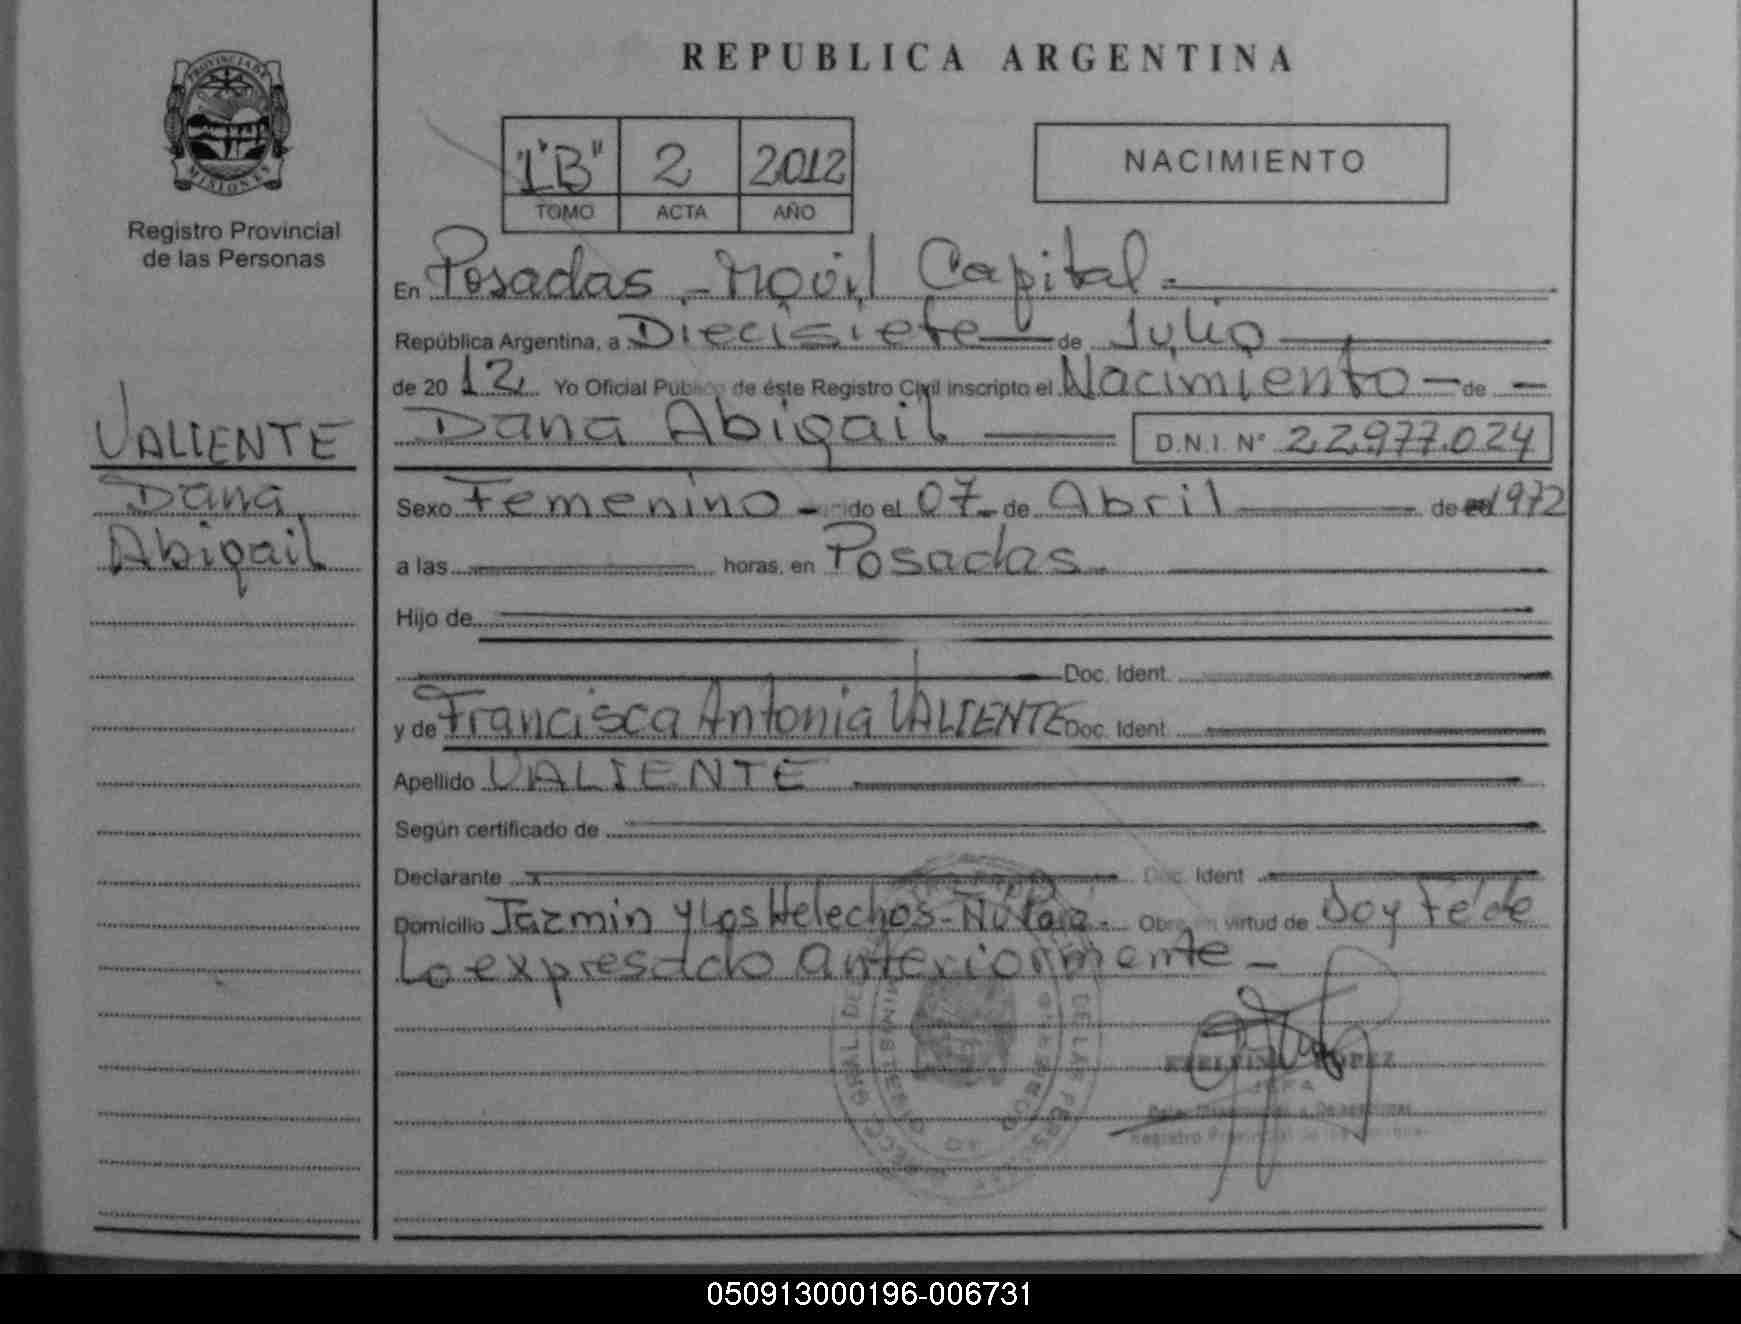 REPUBLICA ARGENTINA
PROVINCIA DE
MISIONES
Registro Provincial
de las Personas
1"B" 2 2012
TOMO ACTA AÑO
NACIMIENTO
En Posadas - Móvil Capital
República Argentina, a Diecisiete de Julio
de 2012 Yo Oficial Público de éste Registro Civil inscripto el Nacimiento de
Dana Abigail D.N.I. N° 22.977.024
VALIENTE
Dana
Abigail
Sexo Femenino ido el 07 de Abril de 1972
a las horas, en Posadas
Hijo de
Doc. Ident.
y de Francisca Antonia VALIENTE Doc. Ident.
Apellido VALIENTE
Según certificado de
Declarante Doc. Ident
Domicilio Jazmin y Los Helechos - Obra en virtud de Doy Fé de
Lo expresado anteriormente
LOPEZ
JEFA
Registro Provincial de las Personas
050913000196-006731